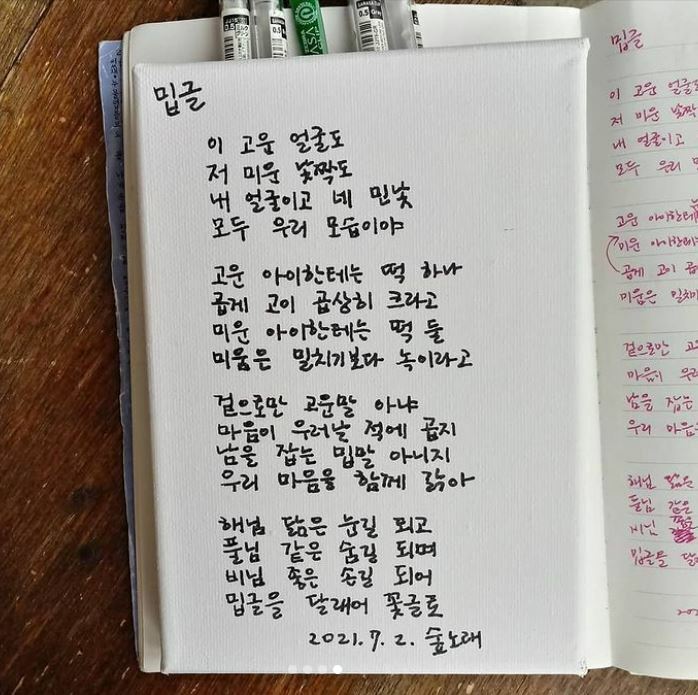 밉글
이 고운 얼굴도
저 미운 낯짝도
내 얼굴이고 네 민낯
모두 우리 모습이야
고운 아이한테는 떡 하나
곱게 고이 곱상히 크라고
미운 아이한테는 떡 둘
미움은 밀치기보다 녹이라고
겉으로만 고운말 아냐
마음이 우러날 적에 곱지
남을 잡는 밉말 아니지
우리 마음을 함께 갉아
해님 닮은 눈길 되고
풀님 같은 숨길 되며
비님 좋은 손길 되어
밉글을 달래어 꽃글로
2021.7.2. 숲노래
밉글
이 고운
저 미운 낯짝
내 얼굴이고
모두 우리
고운 아이한테
미운 아이한테
곱게 고이
미움은 밀치기
겉으로만
마음이
남을 잡는
우리 마음
해님 닮은
풀님 같은
비님
밉글을
0.5
0.5